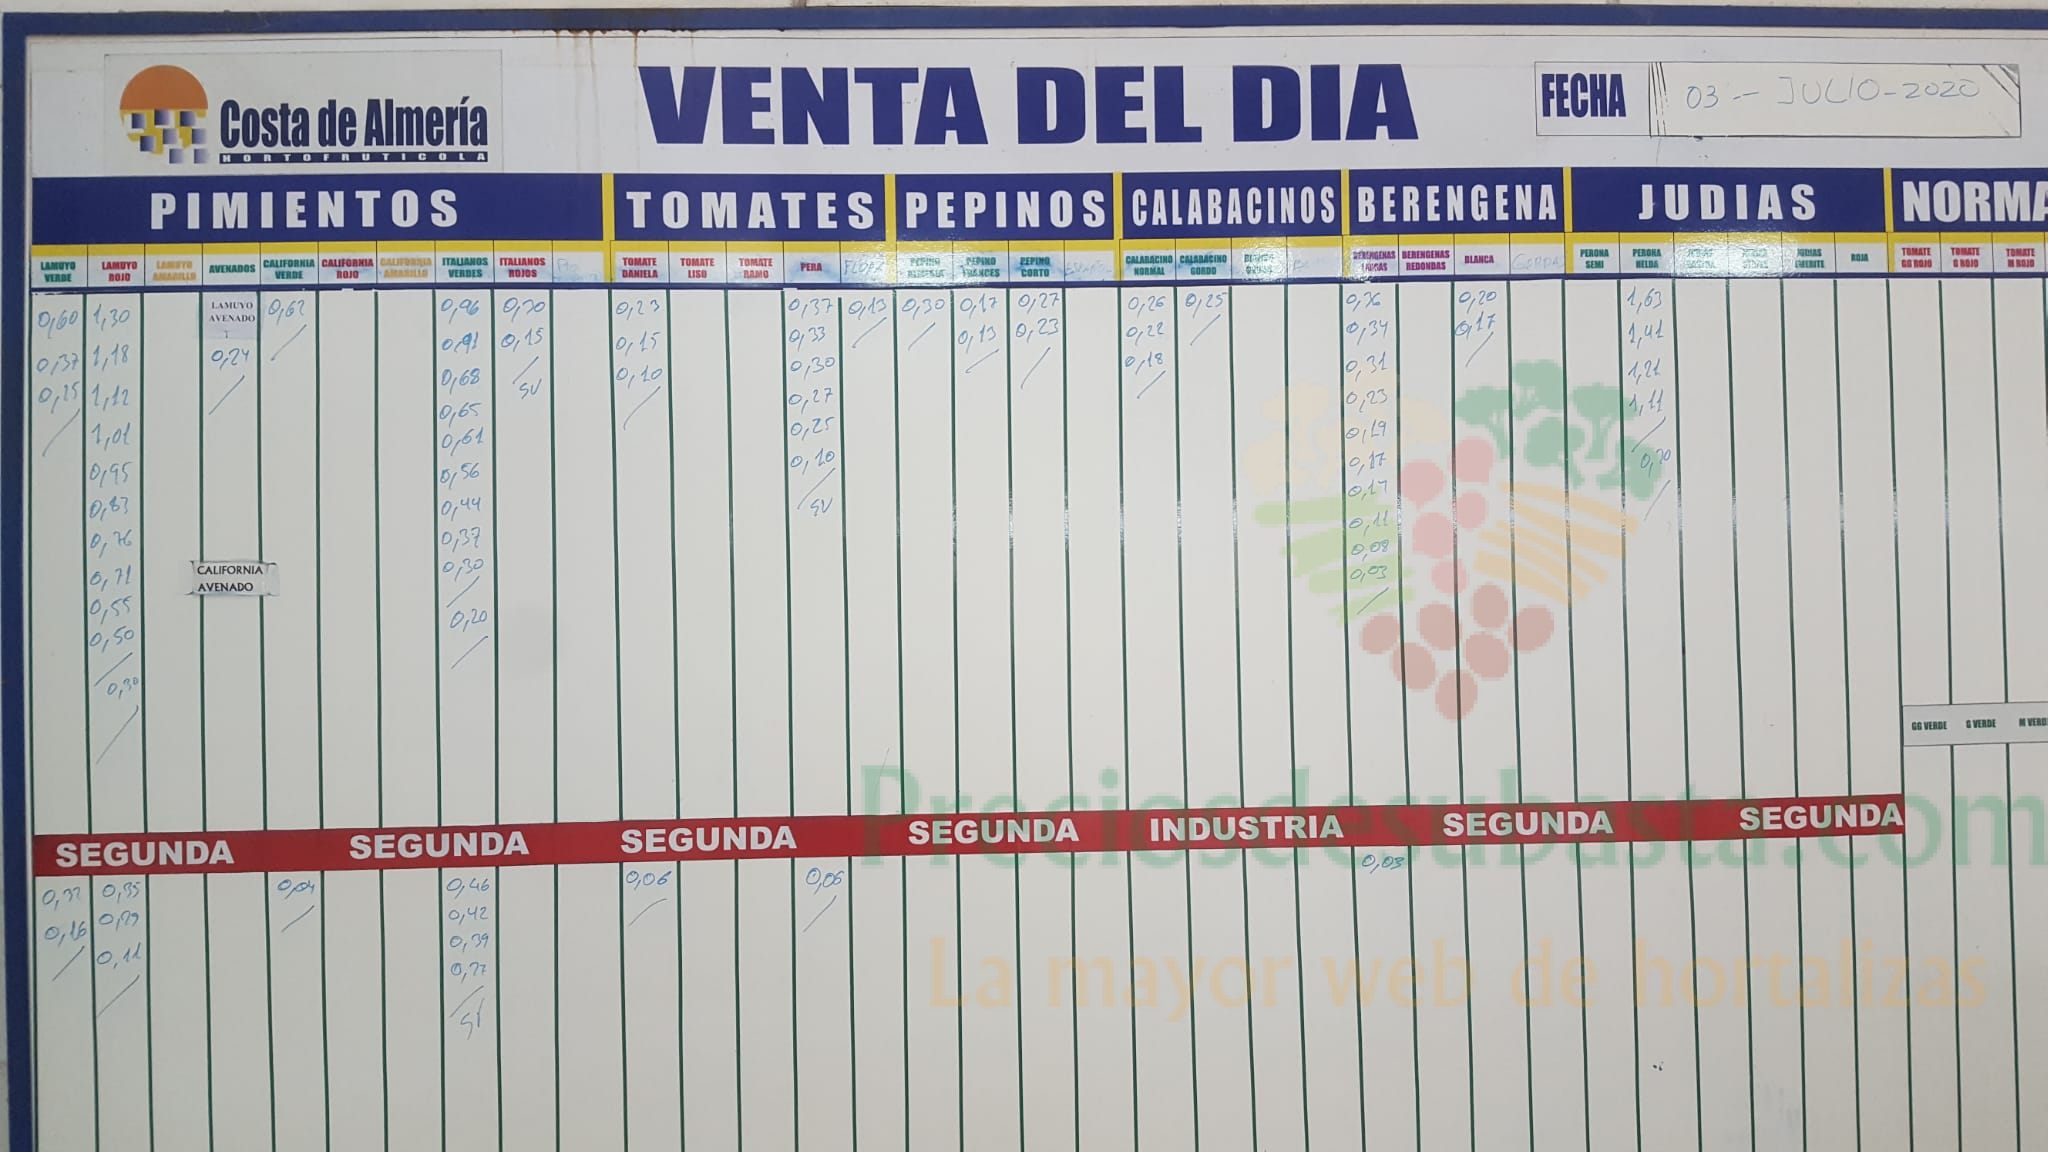 Costa de Almería
HORTOFRUTICOLA
VENTA DEL DIA
FECHA 03 -- JULIO-2020
PIMIENTOS TOMATES PEPINOS CALABACINOS BERENGENA JUDIAS NORMA
LAMUYO VERDE
LAMUYO ROJO
LAMUYO AMARILLO
AVENADOS
CALIFORNIA VERDE
CALIFORNIA ROJO
CALIFORNIA AMARILLO
ITALIANOS VERDES
ITALIANOS ROJOS
TOMATE DANIELA
TOMATE LISO
TOMATE RAMO
PERA
PEPINO FRANCES
PEPINO CORTO
CALABACINO NORMAL
CALABACINO GORDO
BERENGENAS LARGAS
BERENGENAS REDONDAS
BLANCA
PERONA SEMI
PERONA HELDA
ROJA
TOMATE GG ROJO
TOMATE G ROJO
TOMATE M ROJO
0,60
0,37
0,25
1,30
1,18
1,12
1,01
0,95
0,83
0,76
0,71
0,55
0,50
0,30
LAMUYO
AVENADO
0,24
CALIFORNIA
AVENADO
0,62
0,96
0,91
0,68
0,65
0,61
0,56
0,44
0,37
0,30
0,20
0,15
SV
0,23
0,15
0,10
0,37
0,33
0,30
0,27
0,25
0,10
SV
0,13
0,30
0,17
0,13
0,27
0,23
0,26
0,22
0,18
0,25
0,34
0,31
0,23
0,19
0,17
0,11
0,08
0,03
0,20
0,17
1,63
1,41
1,21
1,11
GG VERDE G VERDE M VERD
SEGUNDA SEGUNDA SEGUNDA SEGUNDA INDUSTRIA SEGUNDA SEGUNDA
0,16
0,35
0,29
0,11
0,04
0,46
0,42
0,39
0,27
SV
0,06
0,06
0,03
Preciosdesubasta.com
La mayor web de hortalizas